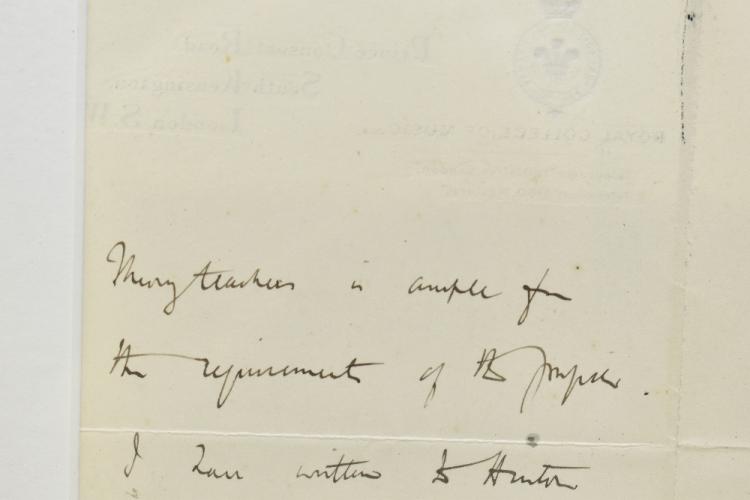 Prince Consort Road
South Kensington
London S.W.
ROYAL COLLEGE OF MUSIC
Theory teachers is ample for
the requirements of the pupils.
I have written to